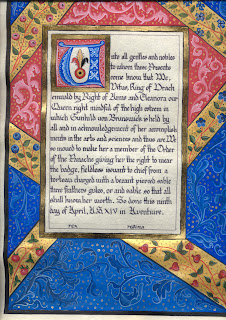 Unto all gentles and nobles
to whom these Presents
come know that We,
Vitus, King of Drach
enwald by Right of Arms and Eleanora our
Queen right mindful of the high esteem in
which Gunhild von Brunswick is held by
all and in acknowledgement of her accomplish
ments in the arts and sciences and thus are We
so moved to make her a member of the Order
of the Panache giving her the right to wear
the badge, fieldless issuant to chief from a
torteau charged with a bezant pierced sable
three feathers gules, or and sable so that all
shall know her worth. So done this ninth
day of April, A.S. XIV in Aventiure.
rex regina